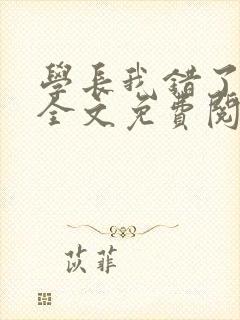 學長我錯了
全文免費閱
苡菲